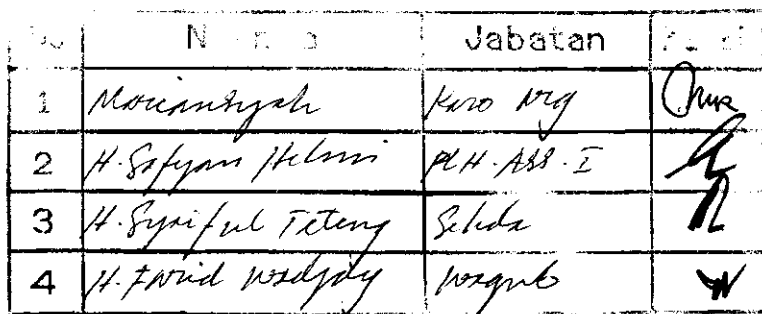 No Nama Jabatan Paraf
1 Mariansyah Karo Org
2 H. Sofyan Helmi PLH. ASS. I
3 H. Syaiful Teteng Sekda
4 H. Farid Wadjdy Wagub